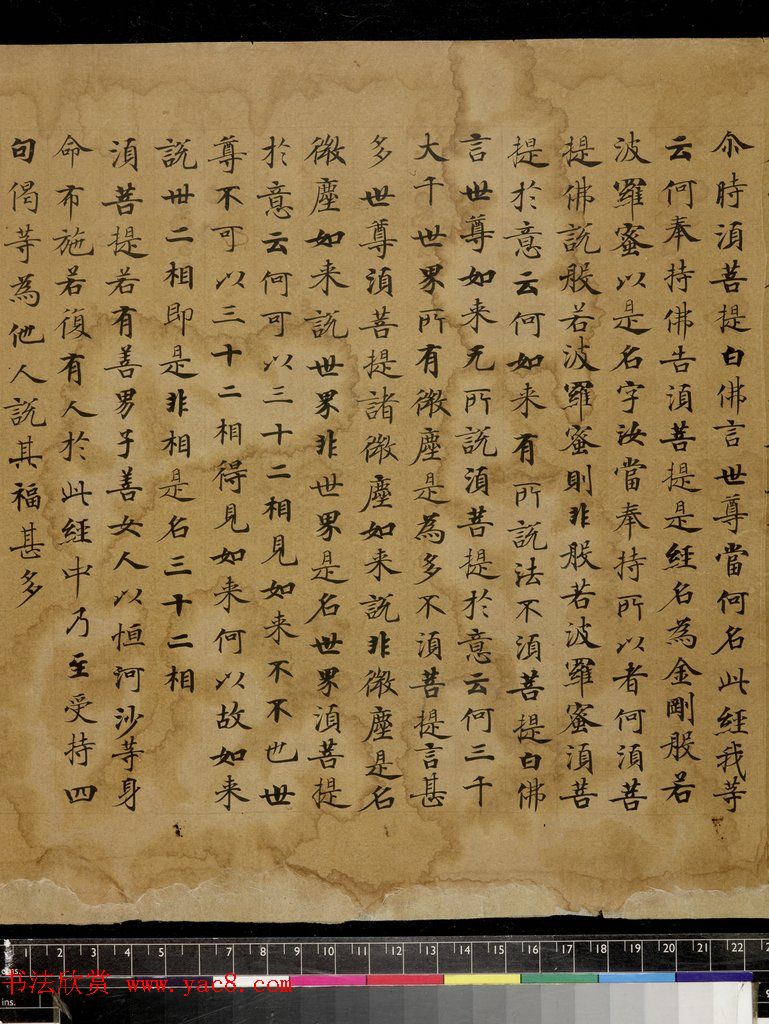 尒時湏菩提白佛言世尊當何名此經我等
云何奉持佛告湏菩提是經名為金剛般若
波羅蜜以是名字汝當奉持所以者何湏菩
提佛說般若波羅蜜則非般若波羅蜜湏菩
提於意云何如来有所說法不湏菩提白佛
言世尊如来无所說湏菩提於意云何三千
大千世界所有微塵是為多不湏菩提言甚
多世尊湏菩提諸微塵如来說非微塵是名
微塵如来說世界非世界是名世界湏菩提
於意云何可以三十二相見如来不不也世
尊不可以三十二相得見如来何以故如来
說卅二相即是非相是名三十二相
湏菩提若有善男子善女人以恒河沙等身
命布施若復有人於此經中乃至受持四
句偈等為他人說其福甚多
cms. 1 2 3 4 5 7 8 9 10 11 12 13 14 15 16 17 18 19 20 21 22
ins.
书法欣赏 www.yac8.com